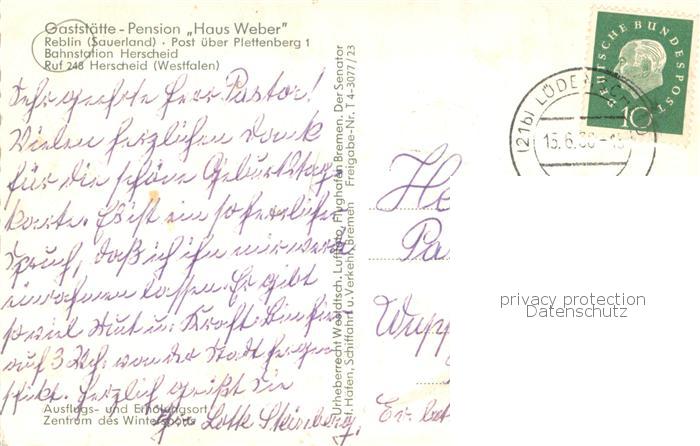 Gaststätte - Pension „Haus Weber"
Reblin (Sauerland) · Post über Plettenberg 1
Bahnstation Herscheid
Ruf 248 Herscheid (Westfalen)
Sehr geehrter Herr Pastor!
Vielen herzlichen Dank
für die schöne Geburtstags-
karte. Es ist ein so herrlicher
Spruch, daß ich ihn mir werde
einrahmen lassen. Er gibt
so viel Mut u. Kraft. Bin hier
auf 3 Wch. von der Stadt
Herzlich grüßt Sie
Ihre Lotte
Ausflugs- und Erholungsort
Zentrum des Wintersports
Urheberrecht Westdtsch. Luftfoto, Flughafen Bremen. Der Senator
f. Häfen, Schiffahrt u. Verkehr, Bremen Freigabe-Nr. T 4-3077/23
DEUTSCHE BUNDESPOST
10
(21b) LÜDENSCH
He
Pa
Wupp
privacy protection
Datenschutz